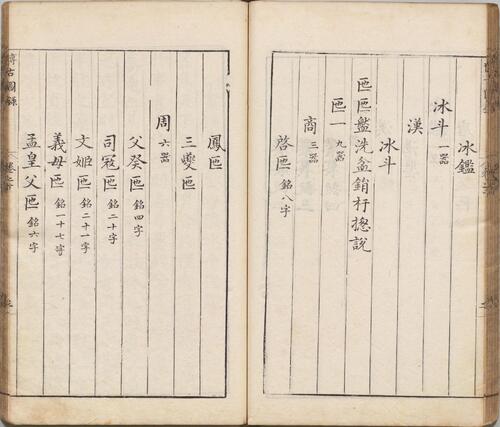 冰鑑
冰斗 一器
漢
冰斗
匜匜盤洗盆鋗杅摠說
匜一 九器
商 三器
啓匜 銘八字
鳳匜
三夔匜
周 六器
父癸匜 銘四字
司寇匜 銘二十字
文姬匜 銘二十一字
義母匜 銘一十七字
孟皇父匜 銘六字
博古圖錄